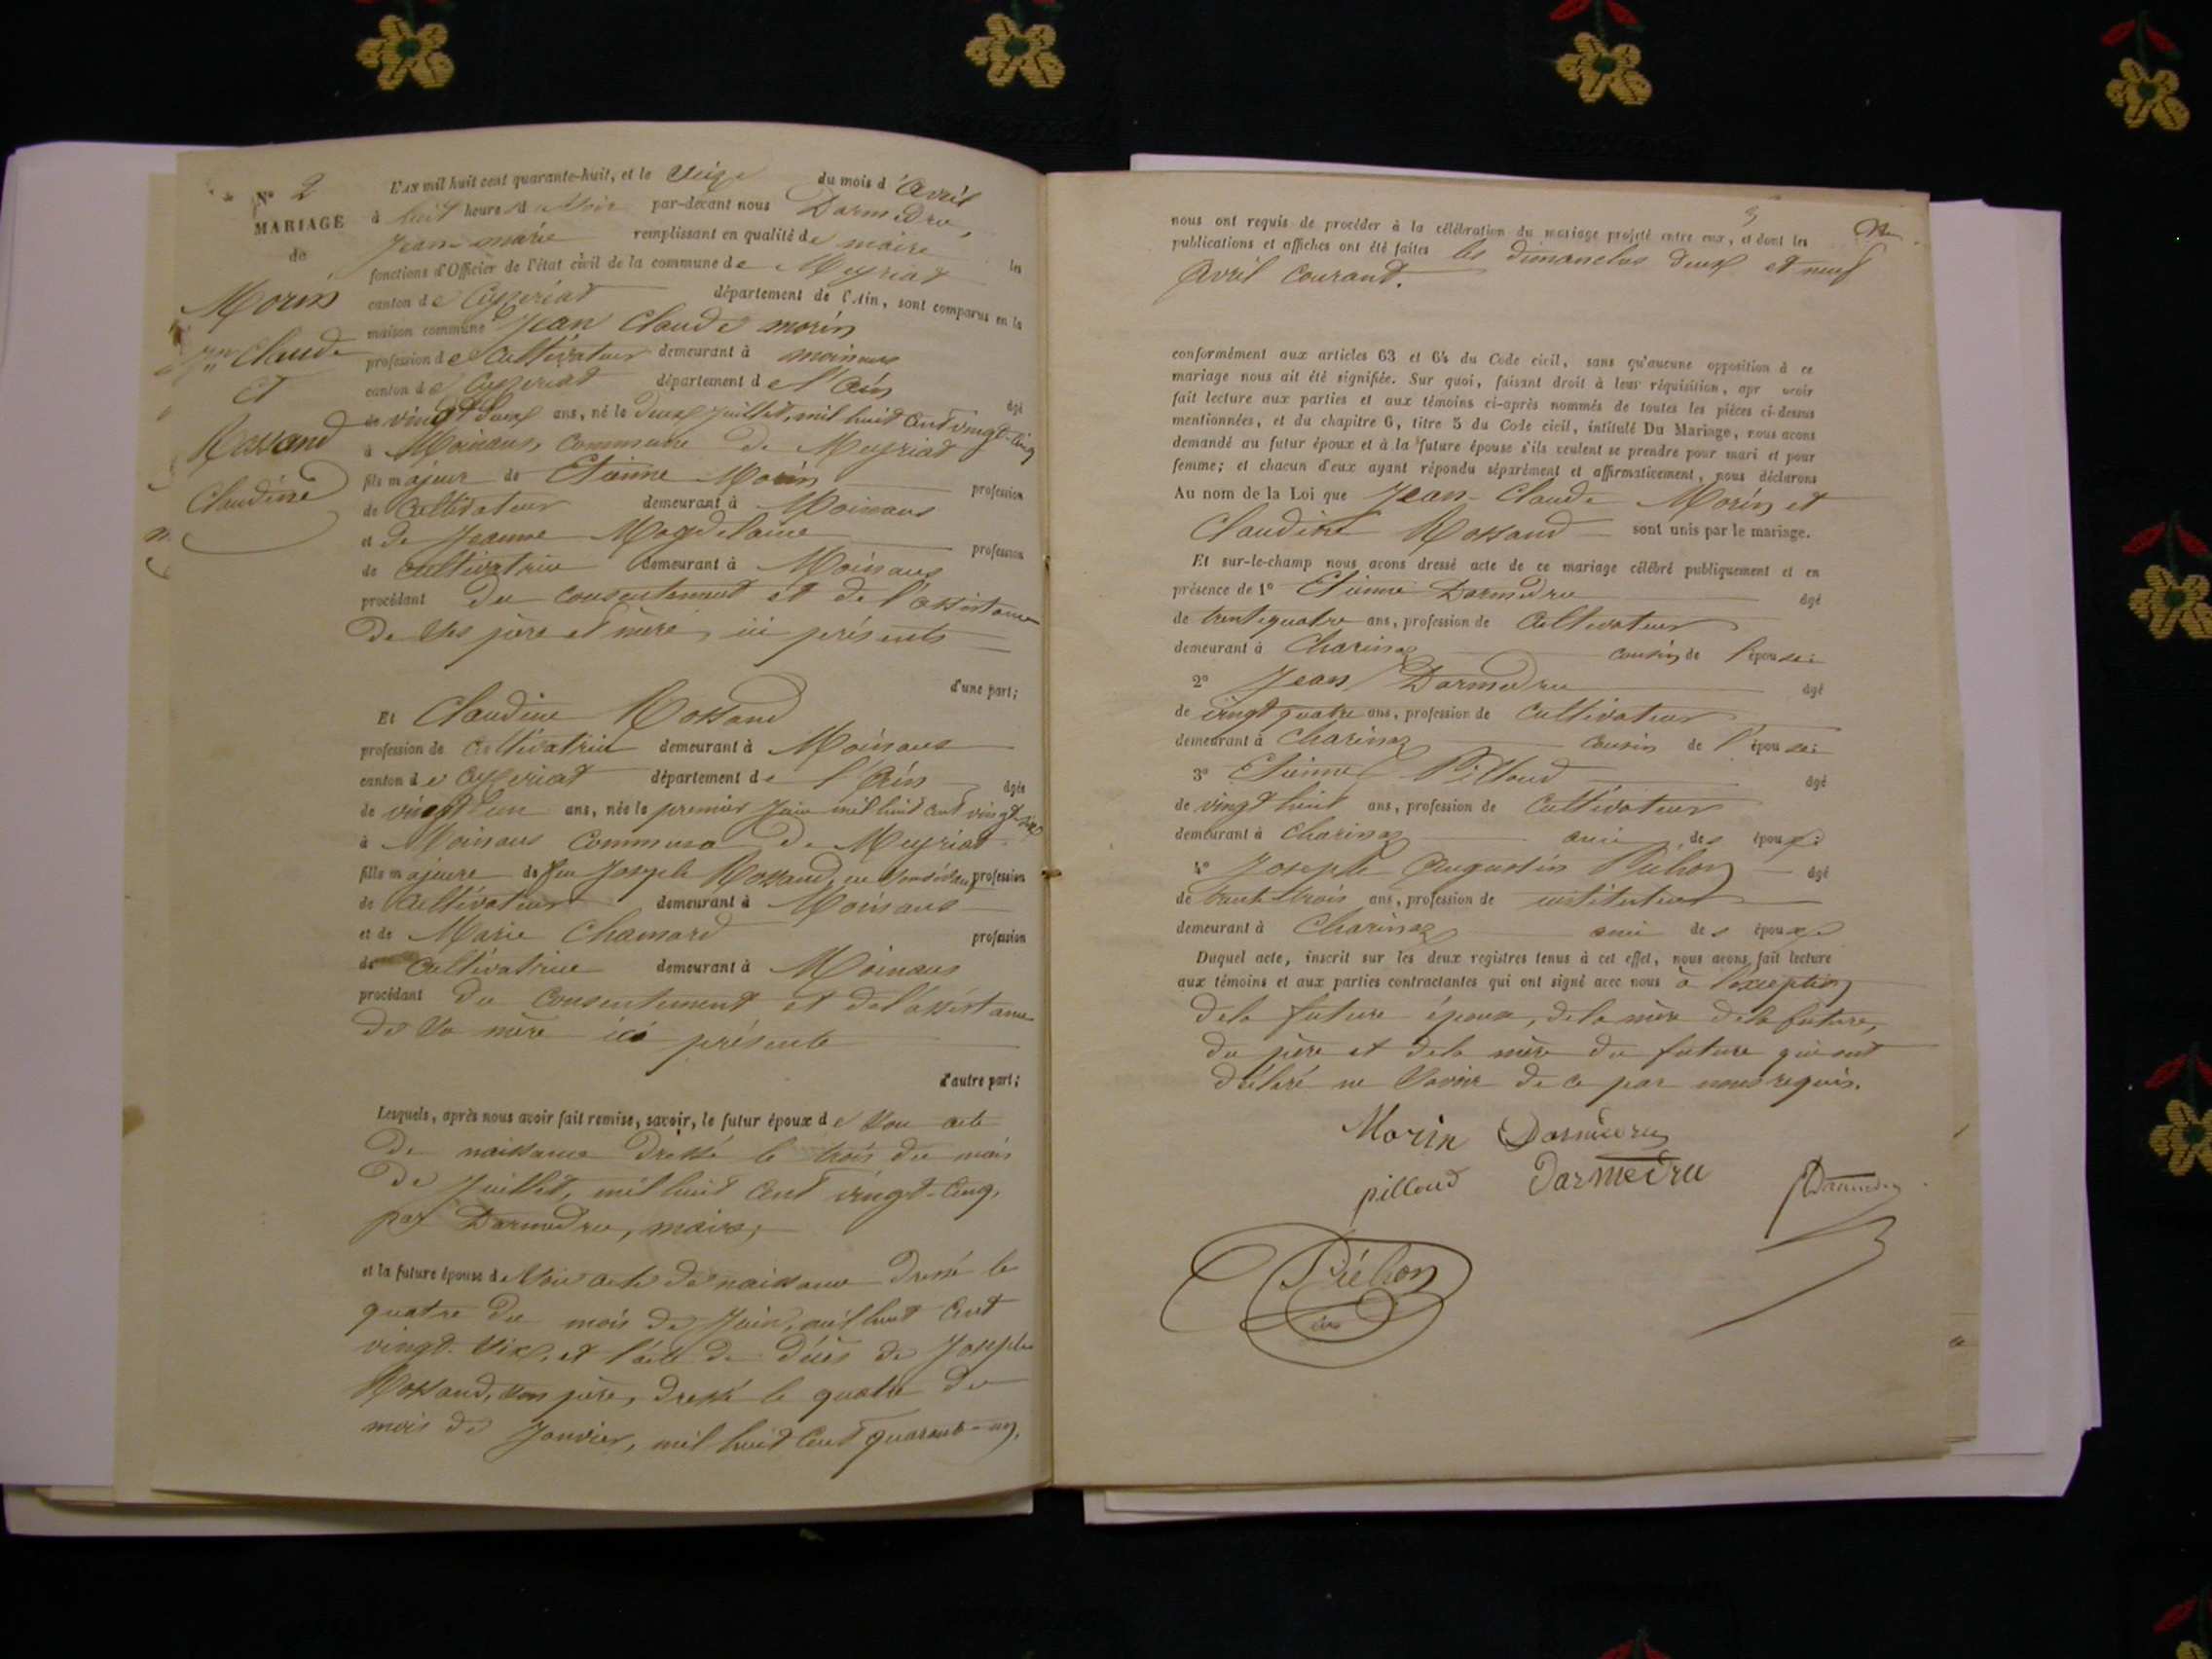 N° 2
MARIAGE
de
Morin
Jn Claude
et
Rossand
Claudine
L'AN mil huit cent quarante-huit, et le Seize du mois d'Avril
à huit heures du Soir par-devant nous Darmedru,
Jean-marie remplissant en qualité de maire les
fonctions d'Officier de l'état civil de la commune de Meyriat
canton de Ceyzeriat département de l'Ain, sont comparus en la
maison commune Jean Claude morin
profession de Cultivateur demeurant à moinans
canton de Ceyzeriat département de l'Ain âgé
de vingt deux ans, né le deux Juillet, mil huit Cent vingt-Cinq
à Moinans, Commune de Meyriat
fils majeur de Etienne Morin profession
de Cultivateur demeurant à Moinans
et de Jeanne Magdelaine profession
de Cultivatrice demeurant à Moinans
procédant du Consentement et de l'assistance
de Ses père et mère, ici présents
d'une part;
Et Claudine Rossand
profession de Cultivatrice demeurant à Moinans
canton de Ceyzeriat département de l'Ain âgée
de vingt un ans, née le premier Juin mil huit Cent vingt-Six
à Moinans Commune de Meyriat
fille majeure de feu Joseph Rossand, profession
de Cultivateur demeurant à Moinans
et de Marie Chanard profession
de Cultivatrice demeurant à Moinans
procédant du Consentement et de l'assistance
de Sa mère ici présente
d'autre part;
Lesquels, après nous avoir fait remise, savoir, le futur époux de Son acte
de naissance dressé le trois du mois
de Juillet, mil huit Cent vingt-Cinq,
par Darmedru, maire;
et la future épouse de Son acte de naissance dressé le
quatre du mois de Juin, mil huit Cent
vingt-Six, et l'acte de décès de Joseph
Rossand, son père, dressé le quatre du
mois de Janvier, mil huit Cent quarante-un,
3
nous ont requis de procéder à la célébration du mariage projeté entre eux, et dont les
publications et affiches ont été faites les dimanches deux et neuf
Avril Courant.
conformément aux articles 63 et 64 du Code civil, sans qu'aucune opposition à ce
mariage nous ait été signifiée. Sur quoi, faisant droit à leur réquisition, apr avoir
fait lecture aux parties et aux témoins ci-après nommés de toutes les pièces ci-dessus
mentionnées, et du chapitre 6, titre 5 du Code civil, intitulé Du Mariage, nous avons
demandé au futur époux et à la future épouse s'ils veulent se prendre pour mari et pour
femme; et chacun d'eux ayant répondu séparément et affirmativement, nous déclarons
Au nom de la Loi que Jean-Claude Morin et
Claudine Rossand sont unis par le mariage.
Et sur-le-champ nous avons dressé acte de ce mariage célébré publiquement et en
présence de 1° Etienne Darmedru âgé
de trente quatre ans, profession de Cultivateur
demeurant à Charinaz cousin de l'épouse:
2° Jean Darmedru âgé
de vingt quatre ans, profession de Cultivateur
demeurant à Charinaz cousin de l'épouse:
3° Etienne Pilloud âgé
de vingt huit ans, profession de Cultivateur
demeurant à Charinaz ami des époux:
4° Joseph Augustin Piéhon âgé
de trente trois ans, profession de instituteur
demeurant à Charinaz ami des époux
Duquel acte, inscrit sur les deux registres tenus à cet effet, nous avons fait lecture
aux témoins et aux parties contractantes qui ont signé avec nous à l'exception
de la future épouse, de la mère de la future,
du père et de la mère du future qui ont
déclaré ne Savoir de ce par nous requis.
Morin Darmedru
pilloud Darmedru
Darmedru
Piéhon